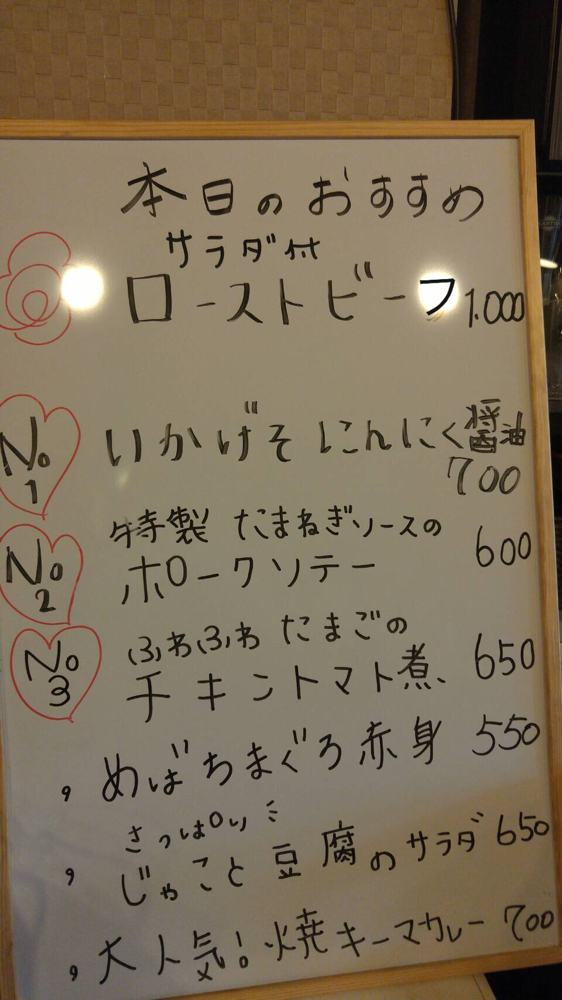 本日のおすすめ
サラダ付
ローストビーフ 1.000
No 1 いかげそにんにく醤油
700
特製 たまねぎソースの
No 2 ポークソテー 600
ふわふわ たまごの
No 3 チキントマト煮、 650
, めばちまぐろ赤身 550
さっぱり ミ
, じゃこと豆腐のサラダ 650
, 大人気!焼キーマカレー 700